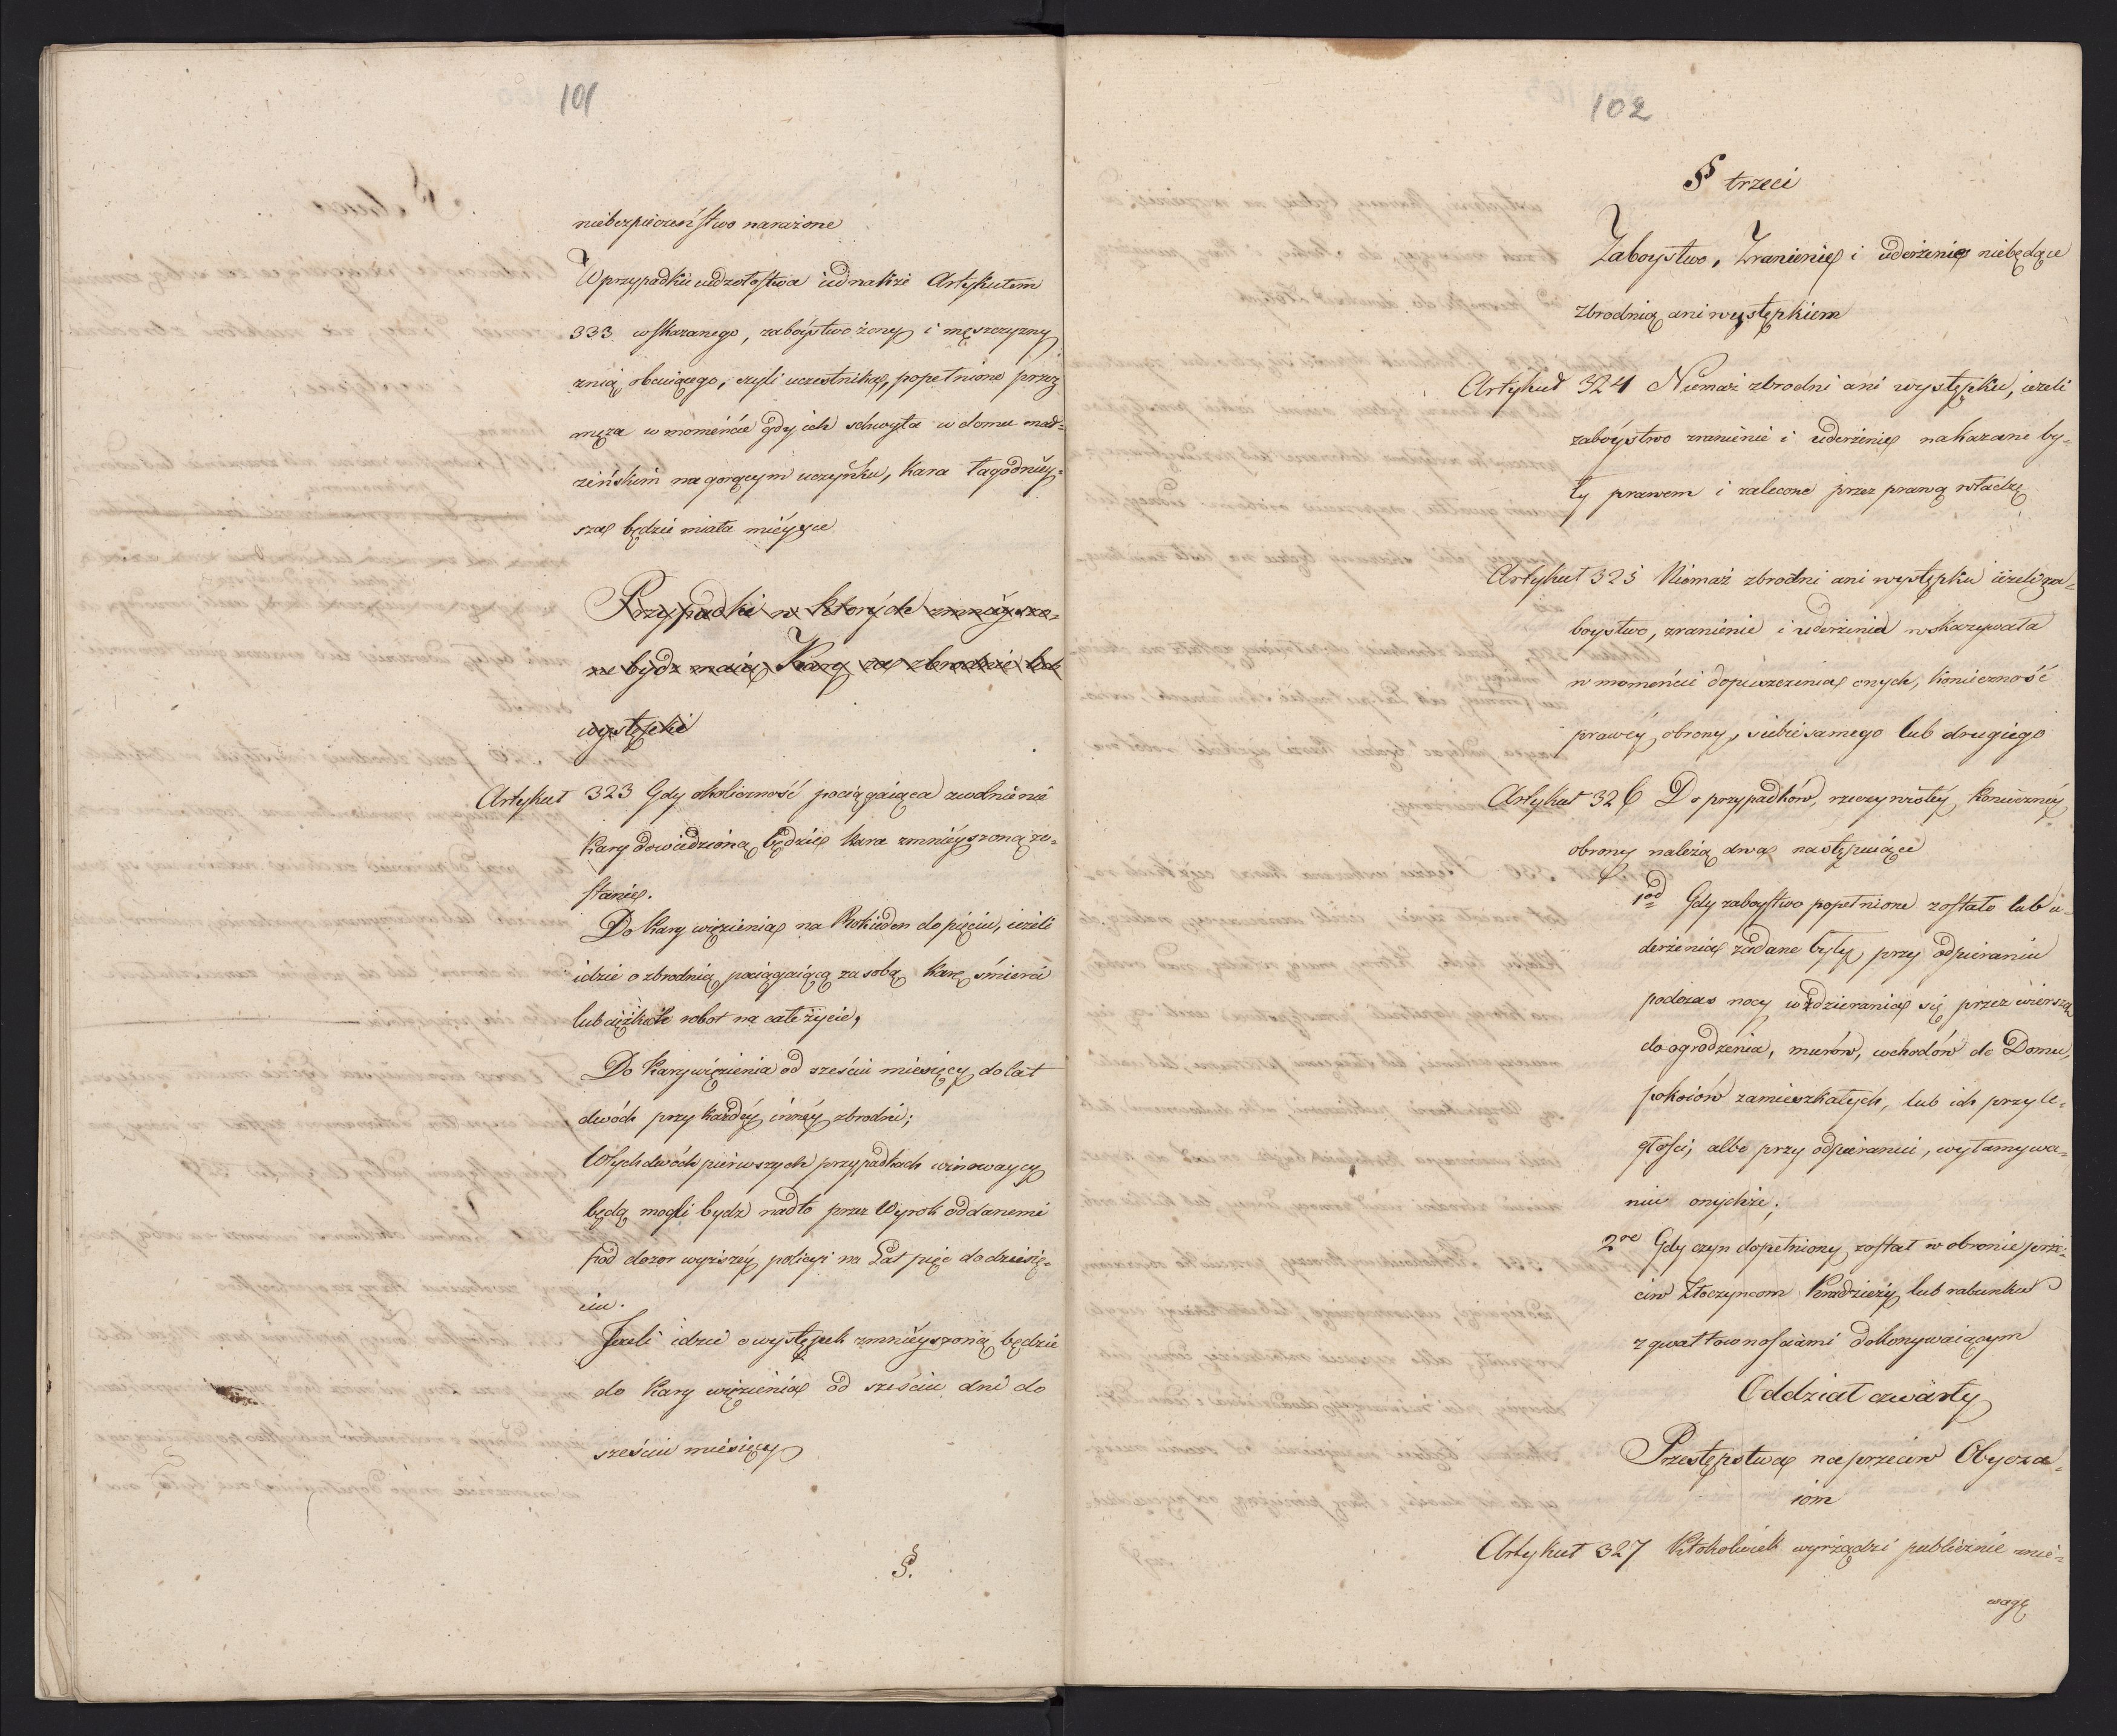 101
niebezpieczeństwo narażone
W przypadku cudzołostwa iednakże Artykułem
333 wskazanego, zaboystwo żony i męszczyzny
z nią obcuiącego, czyli uczestnika, popełnione przez
męza w momencie gdy ich schwyta w domu mał-
zeńskim na gorącym uczynku, kara łagodniey-
sza będzie miała mieysce
Przypadki w których zmnieysza-
ne bydz maią Kary za zbrodnie lub
występki
Artykuł 323 Gdy okoliczność pociągaiąca zwolnienie
kary dowiedziona będzie kara zmnieyszoną zo-
stanie.
Do kary więzienia na Rok ieden do pięciu, ieżeli
idzie o zbrodnią pociągaiącą za sobą karę śmierci
lub ciężkich robot na całe życie,
Do kary więzienia od sześciu miesięcy do lat
dwóch przy każdéy innéy zbrodni;
W tych dwóch pierwszych przypadkach winowaycy
będą mogli bydz nadto przez Wyrok oddanemi
pod dozor wyższéy policyi na Lat pięć do dziesię-
ciu.
Jeżeli idzie o występek zmnieyszoną będzie
do kary więzienia od sześciu dni do
sześciu miesięcy
§.
102
§ trzeci
Zaboystwo, Zranienie i uderzenie niebędące
zbrodnią ani występkiem
Artykuł 324 Niemasz zbrodni ani występku, ieżeli
zaboystwo zranienie i uderzenie nakazane by-
ły prawem i zalecone przez prawą władzę
Artykuł 325 Niemasz zbrodni ani występku ieżeli za-
boystwo, zranienie i uderzenia wskazywała
w momencie dopuszczenia onych, konieczność
prawéy obrony, siebie samego lub drugiego
Artykuł 326 Do przypadków, rzeczywistéy koniecznéy
obrony należą dwa następuiące
1od Gdy zaboystwo popełnione zostało lub u-
derzenia zadane były przy odpieraniu
podczas nocy wdzierania się przez wiersza
do ogrodzenia, murów, wchodów do Domu,
pokoiów zamieszkałych, lub ich przyle-
głości, albo przy odpieraniu, wyłamywa-
niu onychże;
2re Gdy czyn dopełniony został w obronie prze-
ciw Złoczyncom kradzieży lub rabunku
z gwałtownościami dokonywaiącym
Oddział czwarty
Przestępstwa naprzeciw Obycza-
iom
Artykuł 327 Ktokolwiek wyrządzi publicznie znie-
wagę